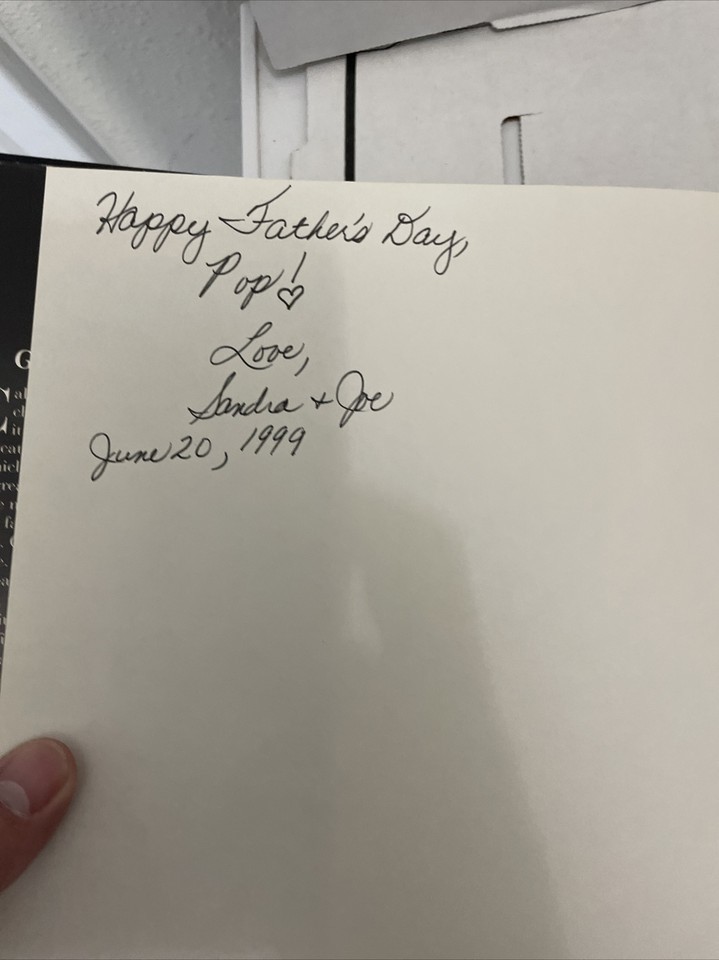 Happy Father's Day,
Pop! ♡
Love,
Sandra + Joe
June 20, 1999
G